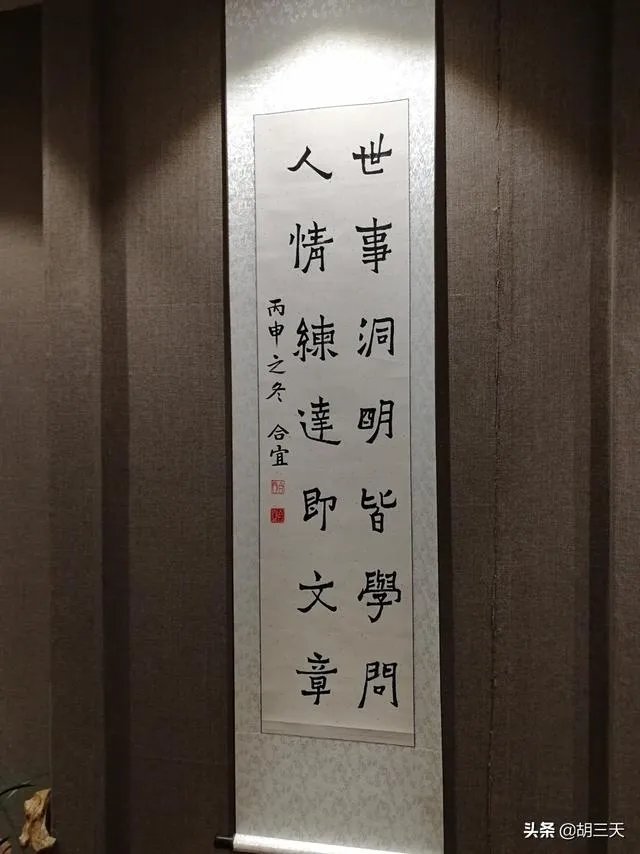 世事洞明皆學問
人情練達即文章
丙申之冬 合宜
头条 @胡三天